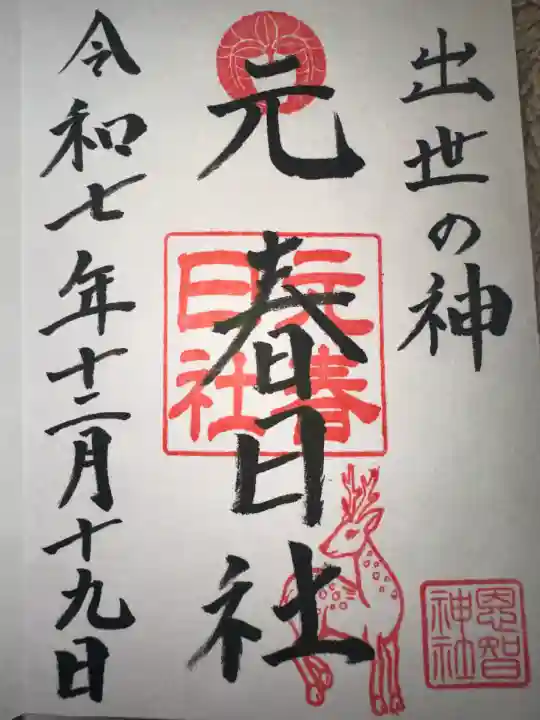 出世の神
元春日社
元春
日社
恩智
神社
令和七年十二月十九日